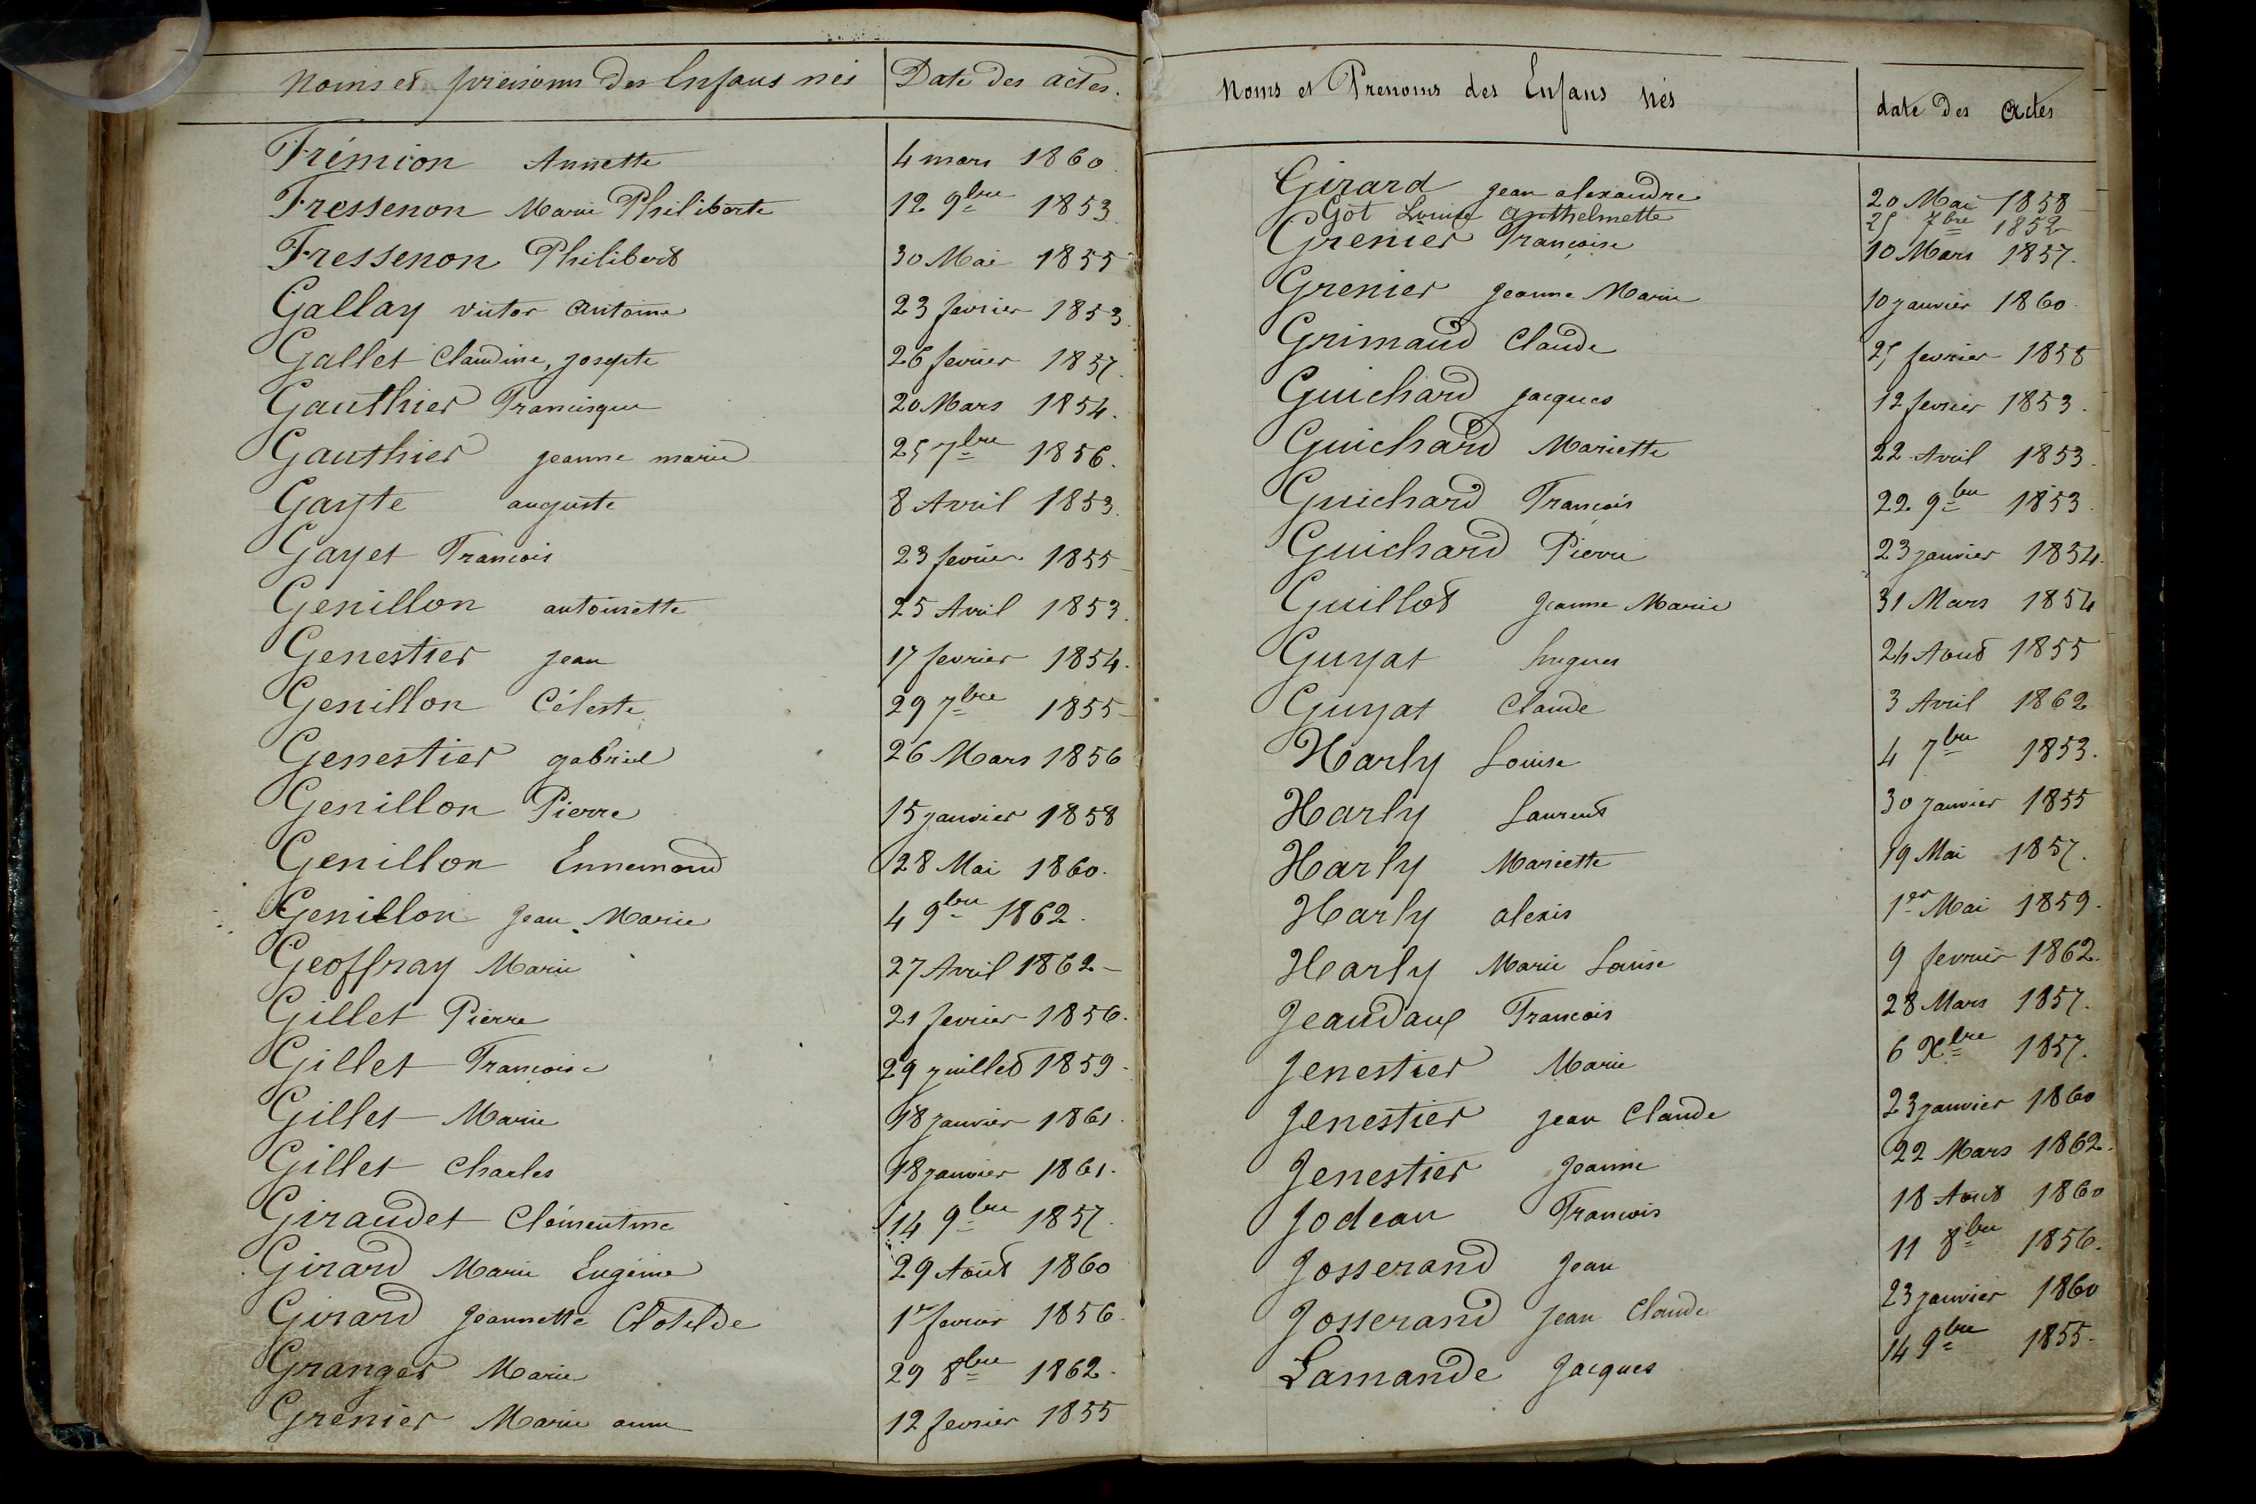 Noms et prénoms des Enfans nés Date des actes.
Frémion Annette 4 mars 1860
Fressenon Marie Philiberte 12 9bre 1853
Fressenon Philibert 30 Mai 1855
Gallay victor antoine 23 fevrier 1853.
Gallet Claudine, josepte 26 fevrier 1857.
Gauthier Francisque 20 Mars 1854.
Gauthier jeanne marie 25 7bre 1856.
Gayte auguste 8 Avril 1853.
Gayet Francois 23 fevrier 1855
Genillon antoinette 25 Avril 1853.
Genestier jean 17 fevrier 1854.
Genillon Céleste 29 7bre 1855
Genestier gabriel 26 Mars 1856
Genillon Pierre 15 janvier 1858
Genillon Ennemond 28 Mai 1860.
Genillon Jean Marie 4 9bre 1862.
Geoffray Marie 27 Avril 1862
Gillet Pierre 21 fevrier 1856.
Gillet Francoise 29 juillet 1859
Gillet Marie 18 janvier 1861.
Gillet Charles 18 janvier 1861.
Giraudet Clémentine 14 9bre 1857.
Girard Marie Eugénie 29 Août 1860
Girard Jeannette Clotilde 1er fevrier 1856.
Granger Marie 29 8bre 1862.
Grenier Marie anne 12 fevrier 1855
Noms et Prenoms des Enfans nés date des Actes
Girard jean alexandre 20 Mai 1858
Got Louise Anthelmette 25 7bre 1852
Grenier Françoise 10 Mars 1857.
Grenier Jeanne Marie 10 janvier 1860.
Grimaud Claude 25 fevrier 1858
Guichard jacques 12 fevrier 1853.
Guichard Mariette 22 Avril 1853.
Guichard François 22 9bre 1853.
Guichard Pierre 23 janvier 1854.
Guillot Jeanne Marie 31 Mars 1854
Guyat hugues 24 Aout 1855
Guyat Claude 3 Avril 1862
Harly Louise 4 7bre 1853.
Harly Laurent 30 janvier 1855
Harly Mariette 19 Mai 1857.
Harly alexis 1er Mai 1859.
Harly Marie Louise 9 fevrier 1862.
Jeandaux Francois 28 Mars 1857.
Jenestier Marie 6 Xbre 1857.
Jenestier jean Claude 23 janvier 1860
Jenestier Jeanne 22 Mars 1862.
Jodeau Francois 18 Aout 1860
Josserand Jean 11 8bre 1856.
Josserand Jean Claude 23 janvier 1860
Lamande Jacques 14 9bre 1855.